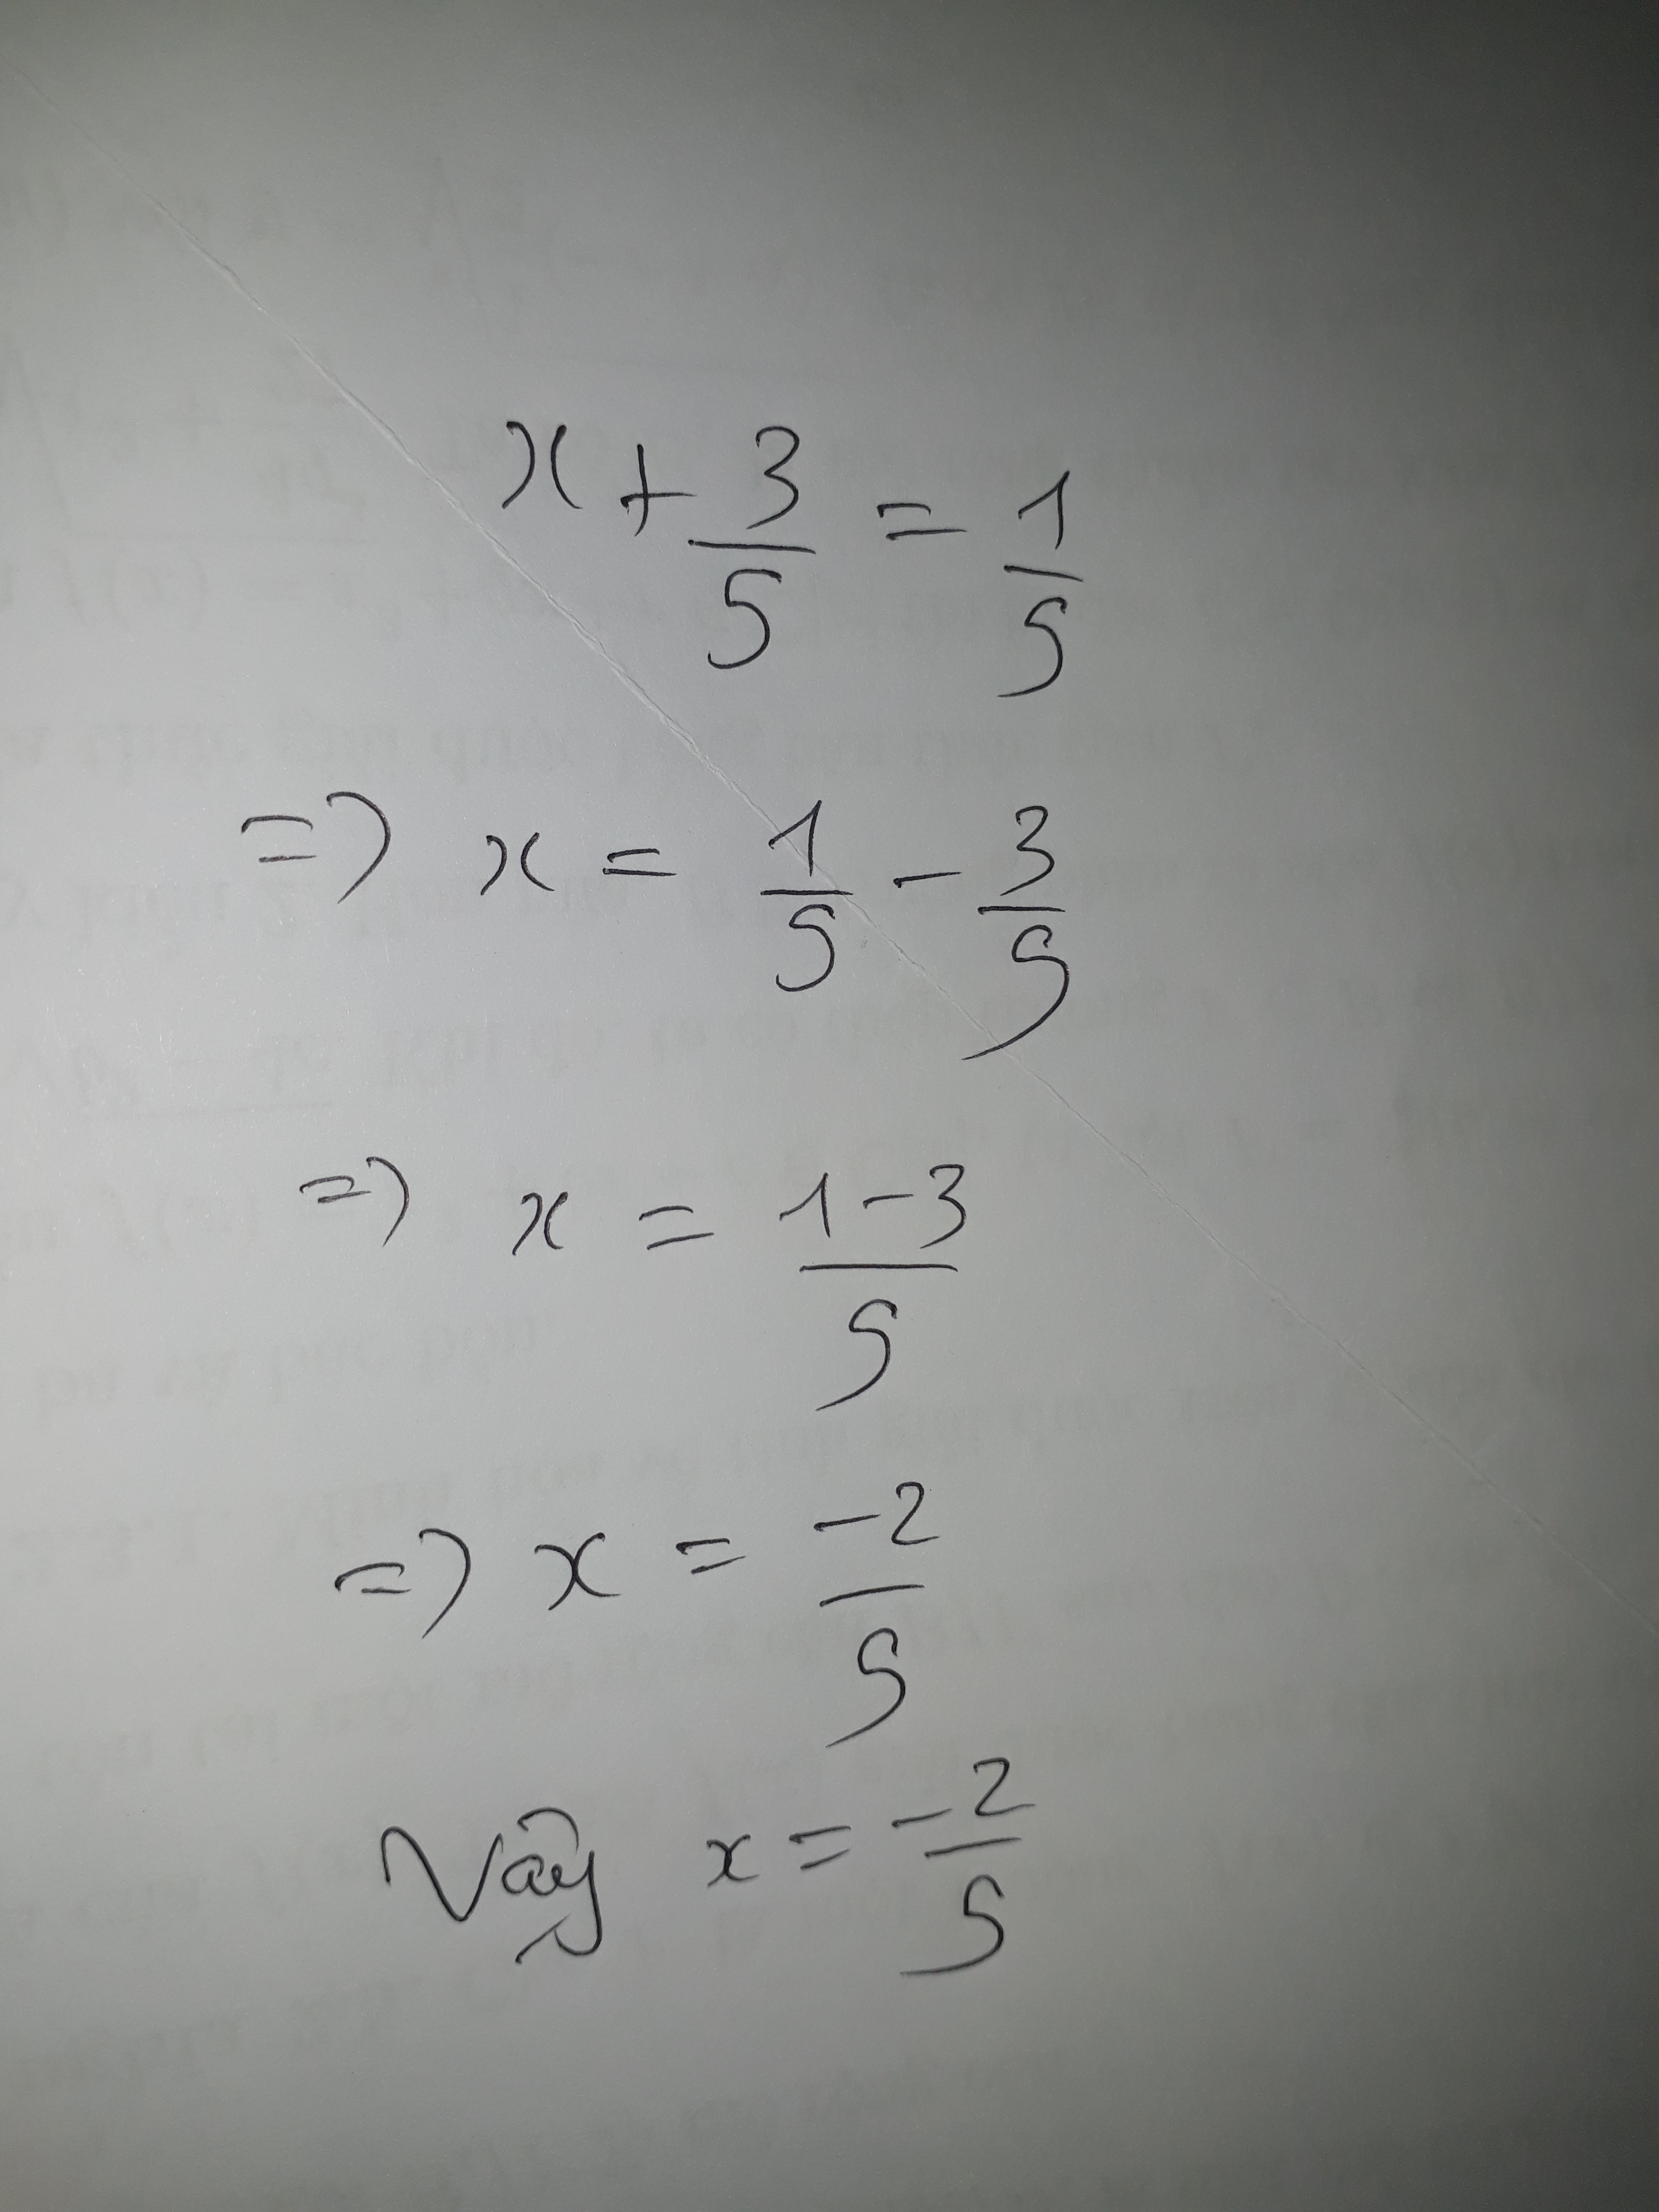 x + 3/5 = 1/5
=> x = 1/5 - 3/5
=> x = 1-3/5
=> x = -2/5
Vậy x = -2/5